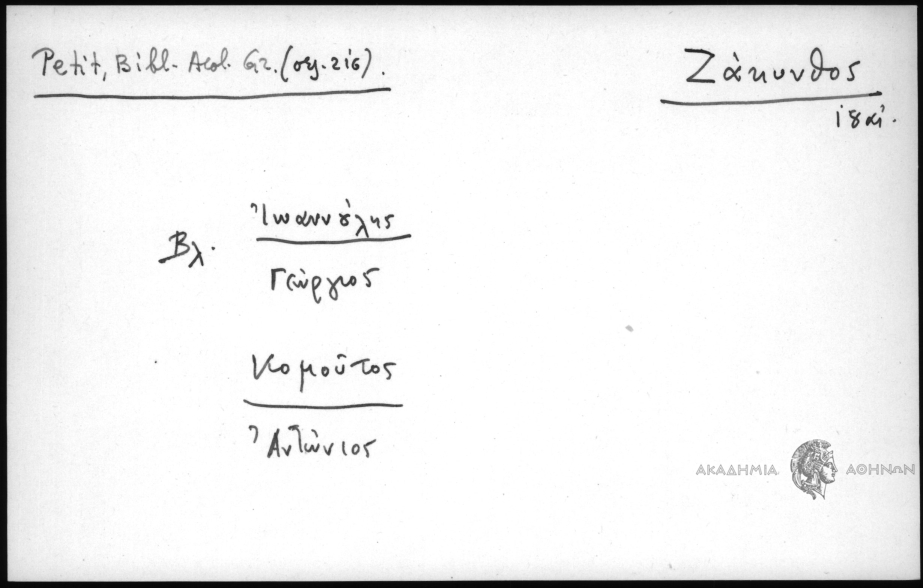 Petit, Bibl. Acol. Gr. (σελ. 216).
Ζάκυνθος
18 αἰ.
Βλ. Ἰωαννούλης
Γεώργιος
Κομοῦτος
Ἀντώνιος
ΑΚΑΔΗΜΙΑ ΑΘΗΝΩΝ